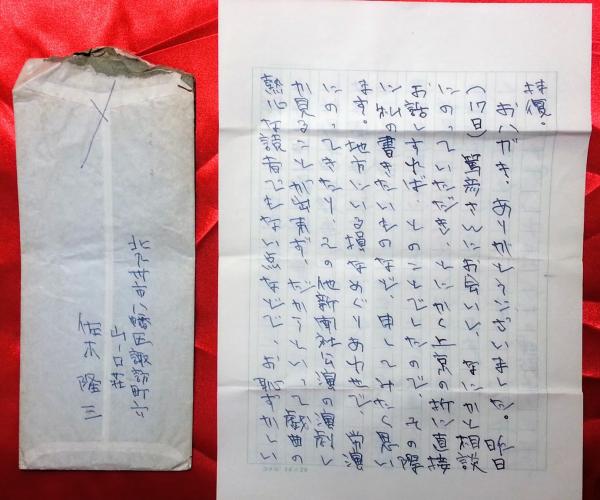 拝復。
おハガキ、ありがとうございました。昨日
(17日)さんにお会いし、なにかと相談
にのっていただき、とにかく上京の折に直接
お話しすれば、とのことでしたので、その際
に私の書きたいものなど、申してみたく思い
ます。地方にいる損なめぐりあわせで、労演
にのってきたり、その他新劇社公演の演劇し
か見ることが出来ず、だからといって戯曲の
熱心な読者でもない点などで、お恥ずかしい
北九州市八幡区諏訪町
山口荘
佐木隆三